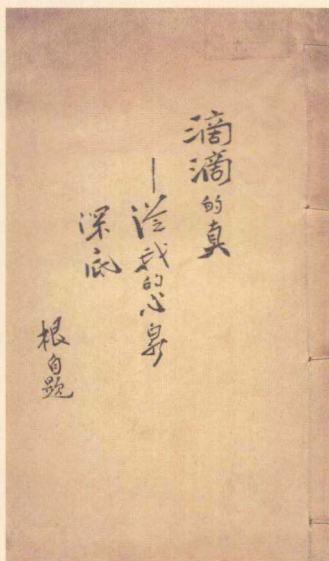 滴滴的真
—從我的心泉
深底
根自題